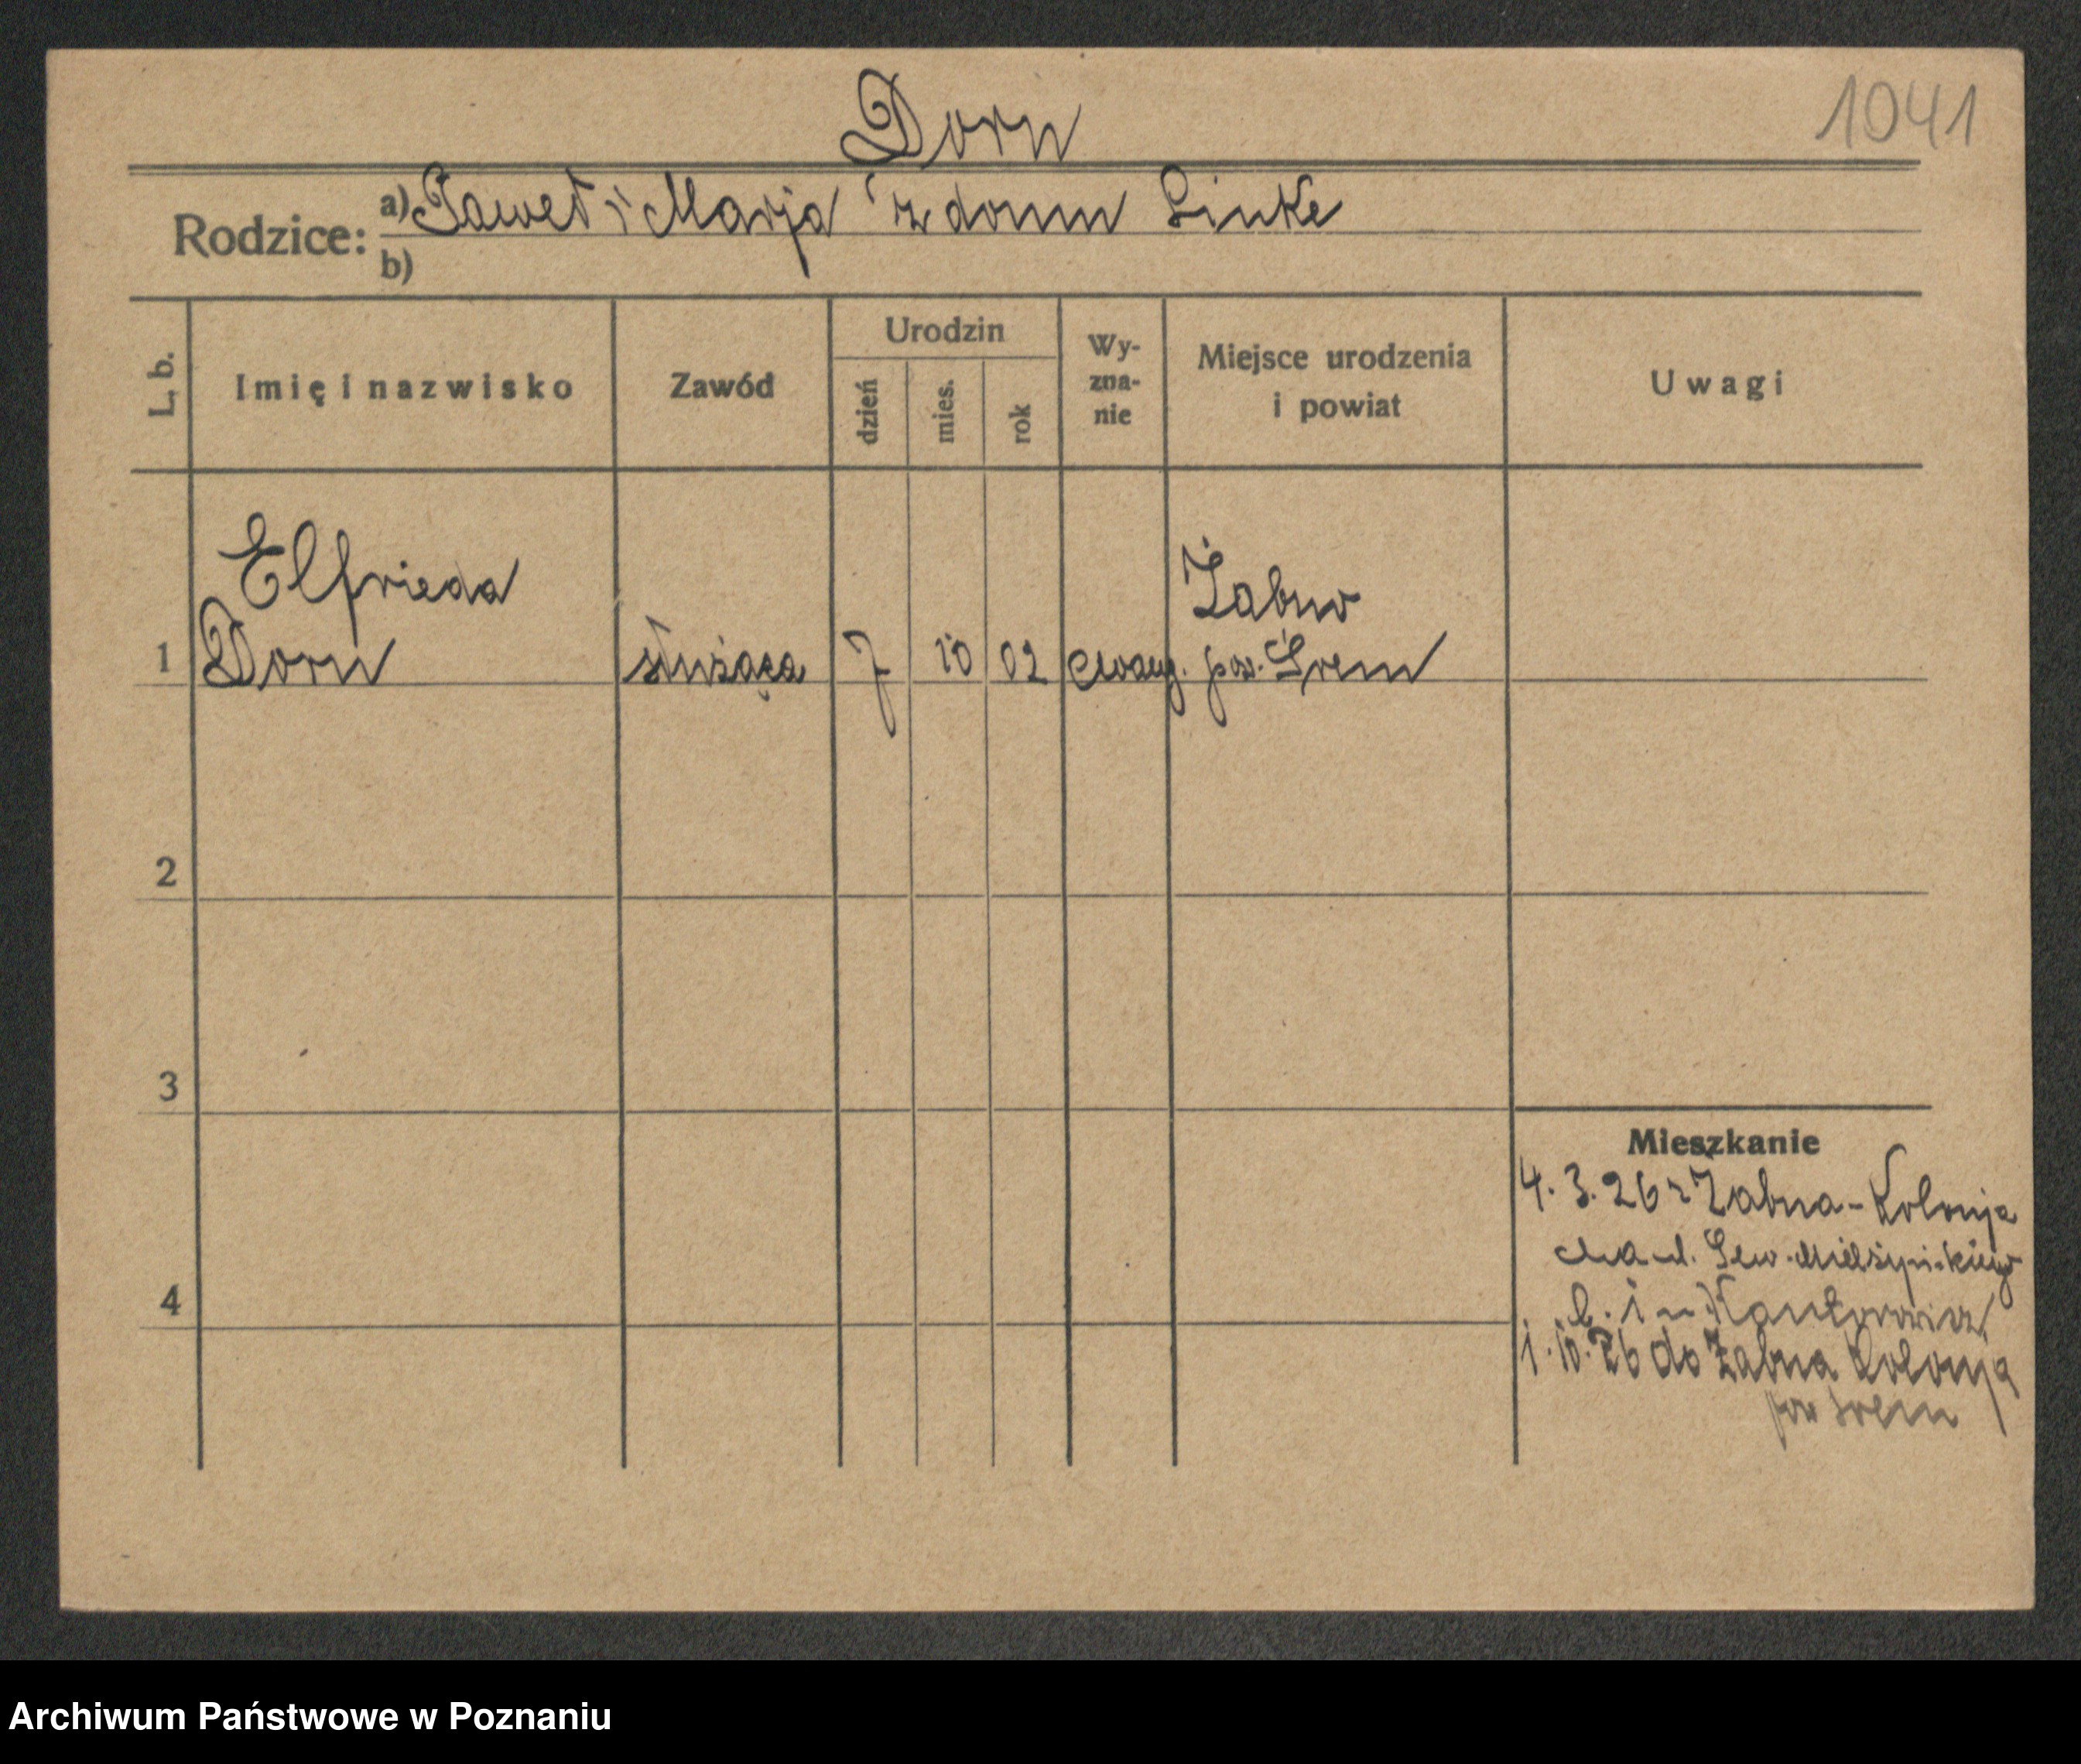 Dorn
1041
Rodzice: a) Paweł i Marja z domu Linke
b)
L. b. Imię i nazwisko Zawód Urodzin dzień mies. rok Wy-zna-nie Miejsce urodzenia i powiat Uwagi
Elfrieda Żabno
1 Dorn służąca 7 10 02 ewang. pow. Śrem
2
3
Mieszkanie
4. 3. 26 z Żabna-Kolonja
4
1. 10. 26 do Żabna Kolonja
pow Śrem
Archiwum Państwowe w Poznaniu